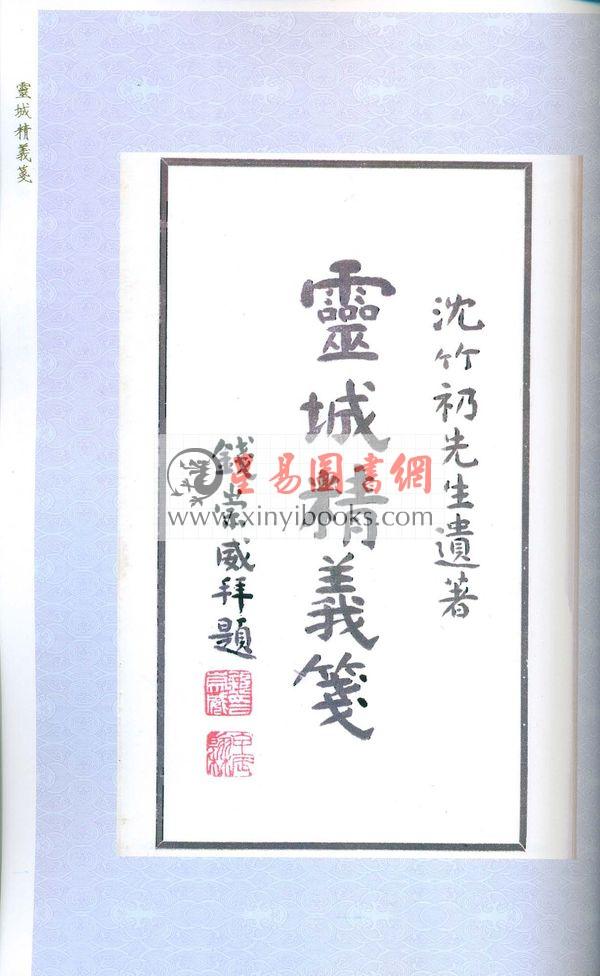 靈城精義箋
沈竹礽先生遺著
靈城精義箋
錢崇威拜題
星易圖書網
www.xinyibooks.com